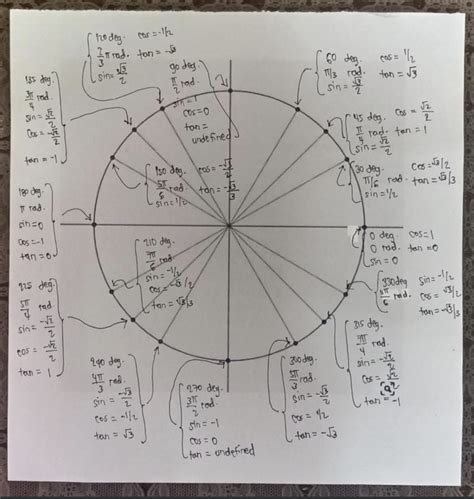 120 deg. cos = -1/2
2/3 π rad. tan = -√3
sin = √3/2
90 deg.
π/2 rad.
sin = 1
cos = 0
tan =
undefined
60 deg. cos = 1/2
π/3 rad. tan = √3
sin = √3/2
45 deg. cos = √2/2
π/4 rad. tan = 1
sin = √2/2
30 deg. cos = √3/2
π/6 rad. tan = √3/3
sin = 1/2
135 deg.
3π/4 rad.
sin = √2/2
cos = -√2/2
tan = -1
150 deg. cos = -√3/2
5π/6 rad. tan = -√3/3
sin = 1/2
180 deg.
π rad.
sin = 0
cos = -1
tan = 0
0 deg. cos = 1
0 rad. tan = 0
sin = 0
210 deg.
7π/6 rad.
sin = -1/2
cos = -√3/2
tan = √3/3
225 deg.
5π/4 rad.
sin = -√2/2
cos = -√2/2
tan = 1
330 deg. sin = -1/2
rad. cos = √3/2
tan = -√3/3
315 deg.
7π/4 rad.
sin = -√2/2
cos = √2/2
tan = -1
240 deg.
4π/3 rad.
sin = -√3/2
cos = -1/2
tan = √3
270 deg.
3π/2 rad.
sin = -1
cos = 0
tan = undefined
deg.
5π/3 rad.
sin = -√3/2
cos = 1/2
tan = -√3